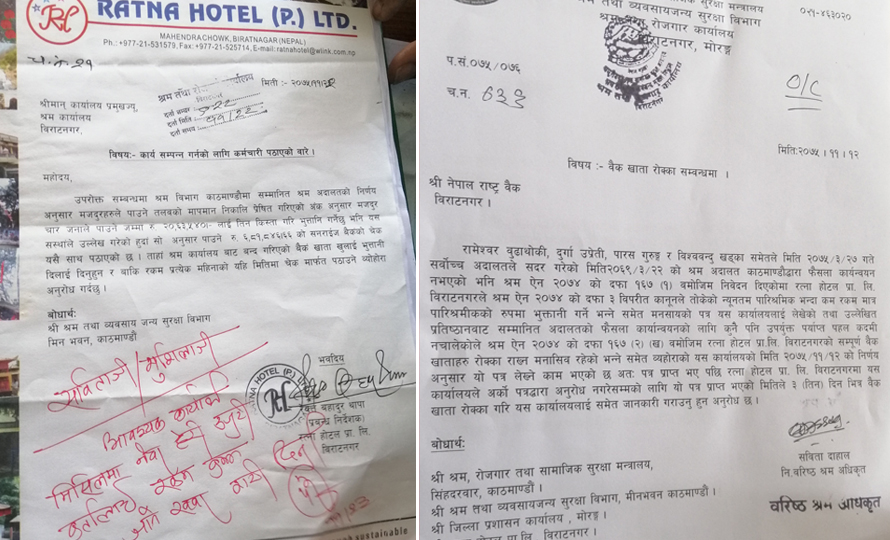 RATNA HOTEL (P.) LTD.
MAHENDRACHOWK, BIRATNAGAR (NEPAL)
Ph.: +977-21-531579, Fax: +977-21-525714, E-mail: ratnahotel@wlink.com.np
च.नं. २१
मिति :- २०७५।११।२३
श्रम तथा
श्रीमान् कार्यालय प्रमुखज्यू,
श्रम कार्यालय
विराटनगर,
विषय:- कार्य सम्पन्न गर्नको लागि कर्मचारी पठाएको बारे ।
महोदय,
उपरोक्त सम्वन्धमा श्रम विभाग काठमाण्डौमा सम्मानित श्रम अदालतको निर्णय
अनुसार मजदुरहरुले पाउने तलवको मापमान निकालि प्रेषित गरिएको अंक अनुसार मजदुर
चार जनाले पाउने जम्मा रु २०,६३,५४०।- लाई तिन किस्ता गरि भुत्तानि गर्नेछु भनि यस
संस्थाले उल्लेख गरेको हुदां सो अनुसार पाउने रु ६,८७,८४६।६६ को सनराईज बैंकको चेक
यसै साथ पठाएको छ । ताहां श्रम कार्यालय बाट वन्द गरिएको बैंक खाता खुलाई भुत्तानी
दिलाई दिनुहुन र बाकि रकम प्रत्येक महिनाको यहि मितिमा चेक मार्फत पठाउने व्योहोरा
अनुरोध गर्दछु ।
बोधार्थ:
श्री श्रम तथा व्यवसाय जन्य सुरक्षा विभाग
मिन भवन, काठमाण्डौं
भवदिय
बहादुर थापा
प्रबन्ध निर्देशक
रत्ना होटल प्रा. लि.
विराटनगर
श्रम तथा व्यवसायजन्य सुरक्षा विभाग
श्रम तथा रोजगार कार्यालय
विराटनगर, मोरङ्ग
०२१-४६३०२०
प.सं.०७५/०७६
च.न. ६३९
O/C
मिति:२०७५।११।१२
विषय :- वैक खाता रोक्का सम्बन्धमा ।
श्री नेपाल राष्ट्र वैक
विराटनगर ।
रामेश्वर वुढाथोकी, दुर्गा उप्रेती, पारस गुरुङ्ग र विश्ववन्दु खड्का समेतले मिति २०७५/३/२७ गते
सर्वोच्च अदालतले सदर गरेको मिति२०६९/३/२२ को श्रम अदालत काठमाण्डौद्वारा फैसला कार्यन्वयन
नभएको भनि श्रम ऐन २०७४ को दफा १६७ (१) वमोजिम निवेदन दिएकोमा रत्ना होटल प्रा. लि.
विराटनगरले श्रम ऐन २०७४ को दफा ३ विपरीत कानूनले तोकेको न्यूनतम पारिश्रमिक भन्दा कम रकम मात्र
पारिश्रमीकको रुपमा भुक्तानी गर्ने भन्ने समेत मनसायको पत्र यस कार्यालयलाई लेखेको तथा उल्लेखित
प्रतिष्ठानवाट सम्मानित अदालतको फैसला कार्यान्वयनको लागि कुनै पनि उपर्युक्त पर्याप्त पहल कदमी
नचालेकोले श्रम ऐन २०७४ को दफा १६७ (२) (ख) वमोजिम रत्ना होटल प्रा.लि. विराटनगरको सम्पूर्ण वैक
खाताहरु रोक्का राख्न मनासिव रहेको भन्ने समेत व्यहोराको यस कार्यालयको मिति २०७५/११/१२ को निर्णय
अनुसार यो पत्र लेख्ने काम भएको छ अत: पत्र प्राप्त भए पछि रत्ना होटल प्रा. लि. विराटनगरका यस
कार्यालयले अर्को पत्रद्वारा अनुरोध नगरेसम्मको लागि यो पत्र प्राप्त भएको मितिले ३ (तिन) दिन भित्र वैक
खाता रोक्का गरि यस कार्यालयलाई समेत जानकारी गराउनु हुन अनुरोध छ ।
बोधार्थ:
श्री श्रम, रोजगार तथा सामाजिक सुरक्षा मन्त्रालय,
सिंहदरवार, काठमाण्डौं ।
श्री श्रम तथा व्यवसायजन्य सुरक्षा विभाग, मीनभवन काठमाण्डौं ।
श्री जिल्ला प्रशासन कार्यालय , मोरङ्ग ।
होटल प्रा.लि. विराटनगर ।
सविता दाहाल
नि.वरिष्ठ श्रम अधिकृत
वरिष्ठ श्रम अधिकृत